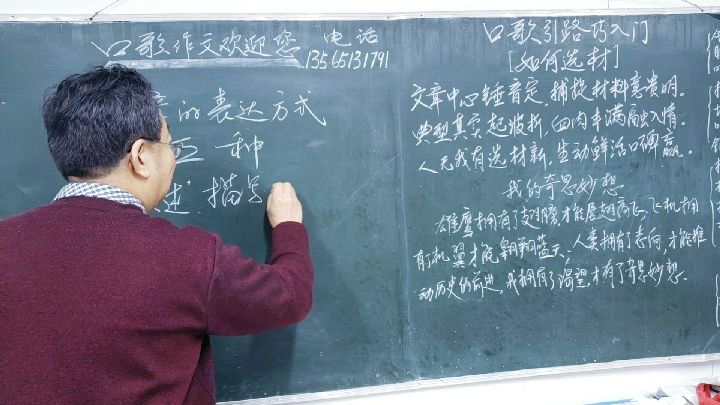 口歌作文欢迎您 电话
13565131791
的表达方式
五种
述 描写
口歌引路巧入门
[如何选材]
文章中心锤肯定,捕捉材料意贵明。
典型真实起波折,血肉丰满融入情。
人无我有选材新,生动鲜活口碑赢。
我的奇思妙想
雄鹰拥有了翅膀,才能展翅高飞,飞机拥
有机翼才能翱翔蓝天;人类拥有了志向,才能推
动历史的前进,我拥有了渴望,才有了奇思妙想。